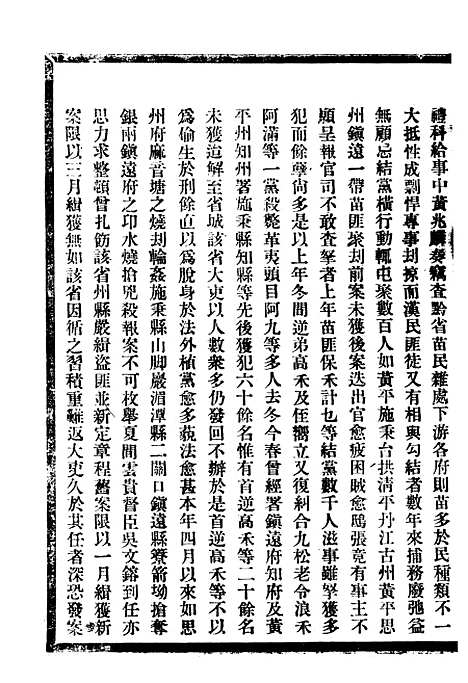 禮科給事中黃兆麟奏竊查黔省苗民雜處下游各府則苗多於民種類不一
大抵性成剽悍專事刧掠而漢民匪徒又有相與勾結者數年來捕務廢弛益
無顧忌結黨橫行動輒屯聚數百人如黃平施秉台拱清平丹江古州黃平思
州鎮遠一帶苗匪聚刧前案未獲後案迭出官愈疲困賊愈鴟張竟有事主不
願呈報官司不敢查拏者上年苗匪保禾計乜等結黨數千人滋事雖拏獲多
犯而餘孽尙多是以上年冬間逆弟高禾及侄嚮立又復糾合九松老令浪禾
阿滿等一黨殺斃革夷頭目阿九等多人去冬今春曾經署鎮遠府知府及黃
平州知州署施秉縣知縣等先後獲犯六十餘名惟有首逆高禾等二十餘名
未獲迨解至省城該省大吏以人數衆多仍發回不辦於是首逆高禾等不以
爲偷生於刑餘直以爲脫身於法外植黨愈多藐法愈甚本年四月以來如思
州府麻音塘之燒刧輪姦施秉縣山脚嚴湄潭縣二關口鎮遠縣寮箭坳搶奪
銀兩鎮遠府之卬水燒搶兇殺報案不可枚擧夏間雲貴督臣吳文鎔到任亦
思力求整頓曾扎飭該省州縣嚴緝盜匪並新定章程舊案限以一月緝獲新
案限以三月緝獲無如該省因循之習積重難返大吏久於其任者深恐發案